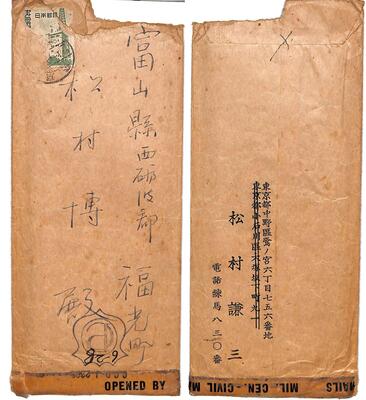 日本郵便
富山縣西砺波郡
福光町
松村博殿
6-26
OPENED BY
東京都中野區鷺ノ宮六丁目七五六番地
松村謙三
電話練馬八三〇番
MAILS
MIL. CEN.-CIVIL M